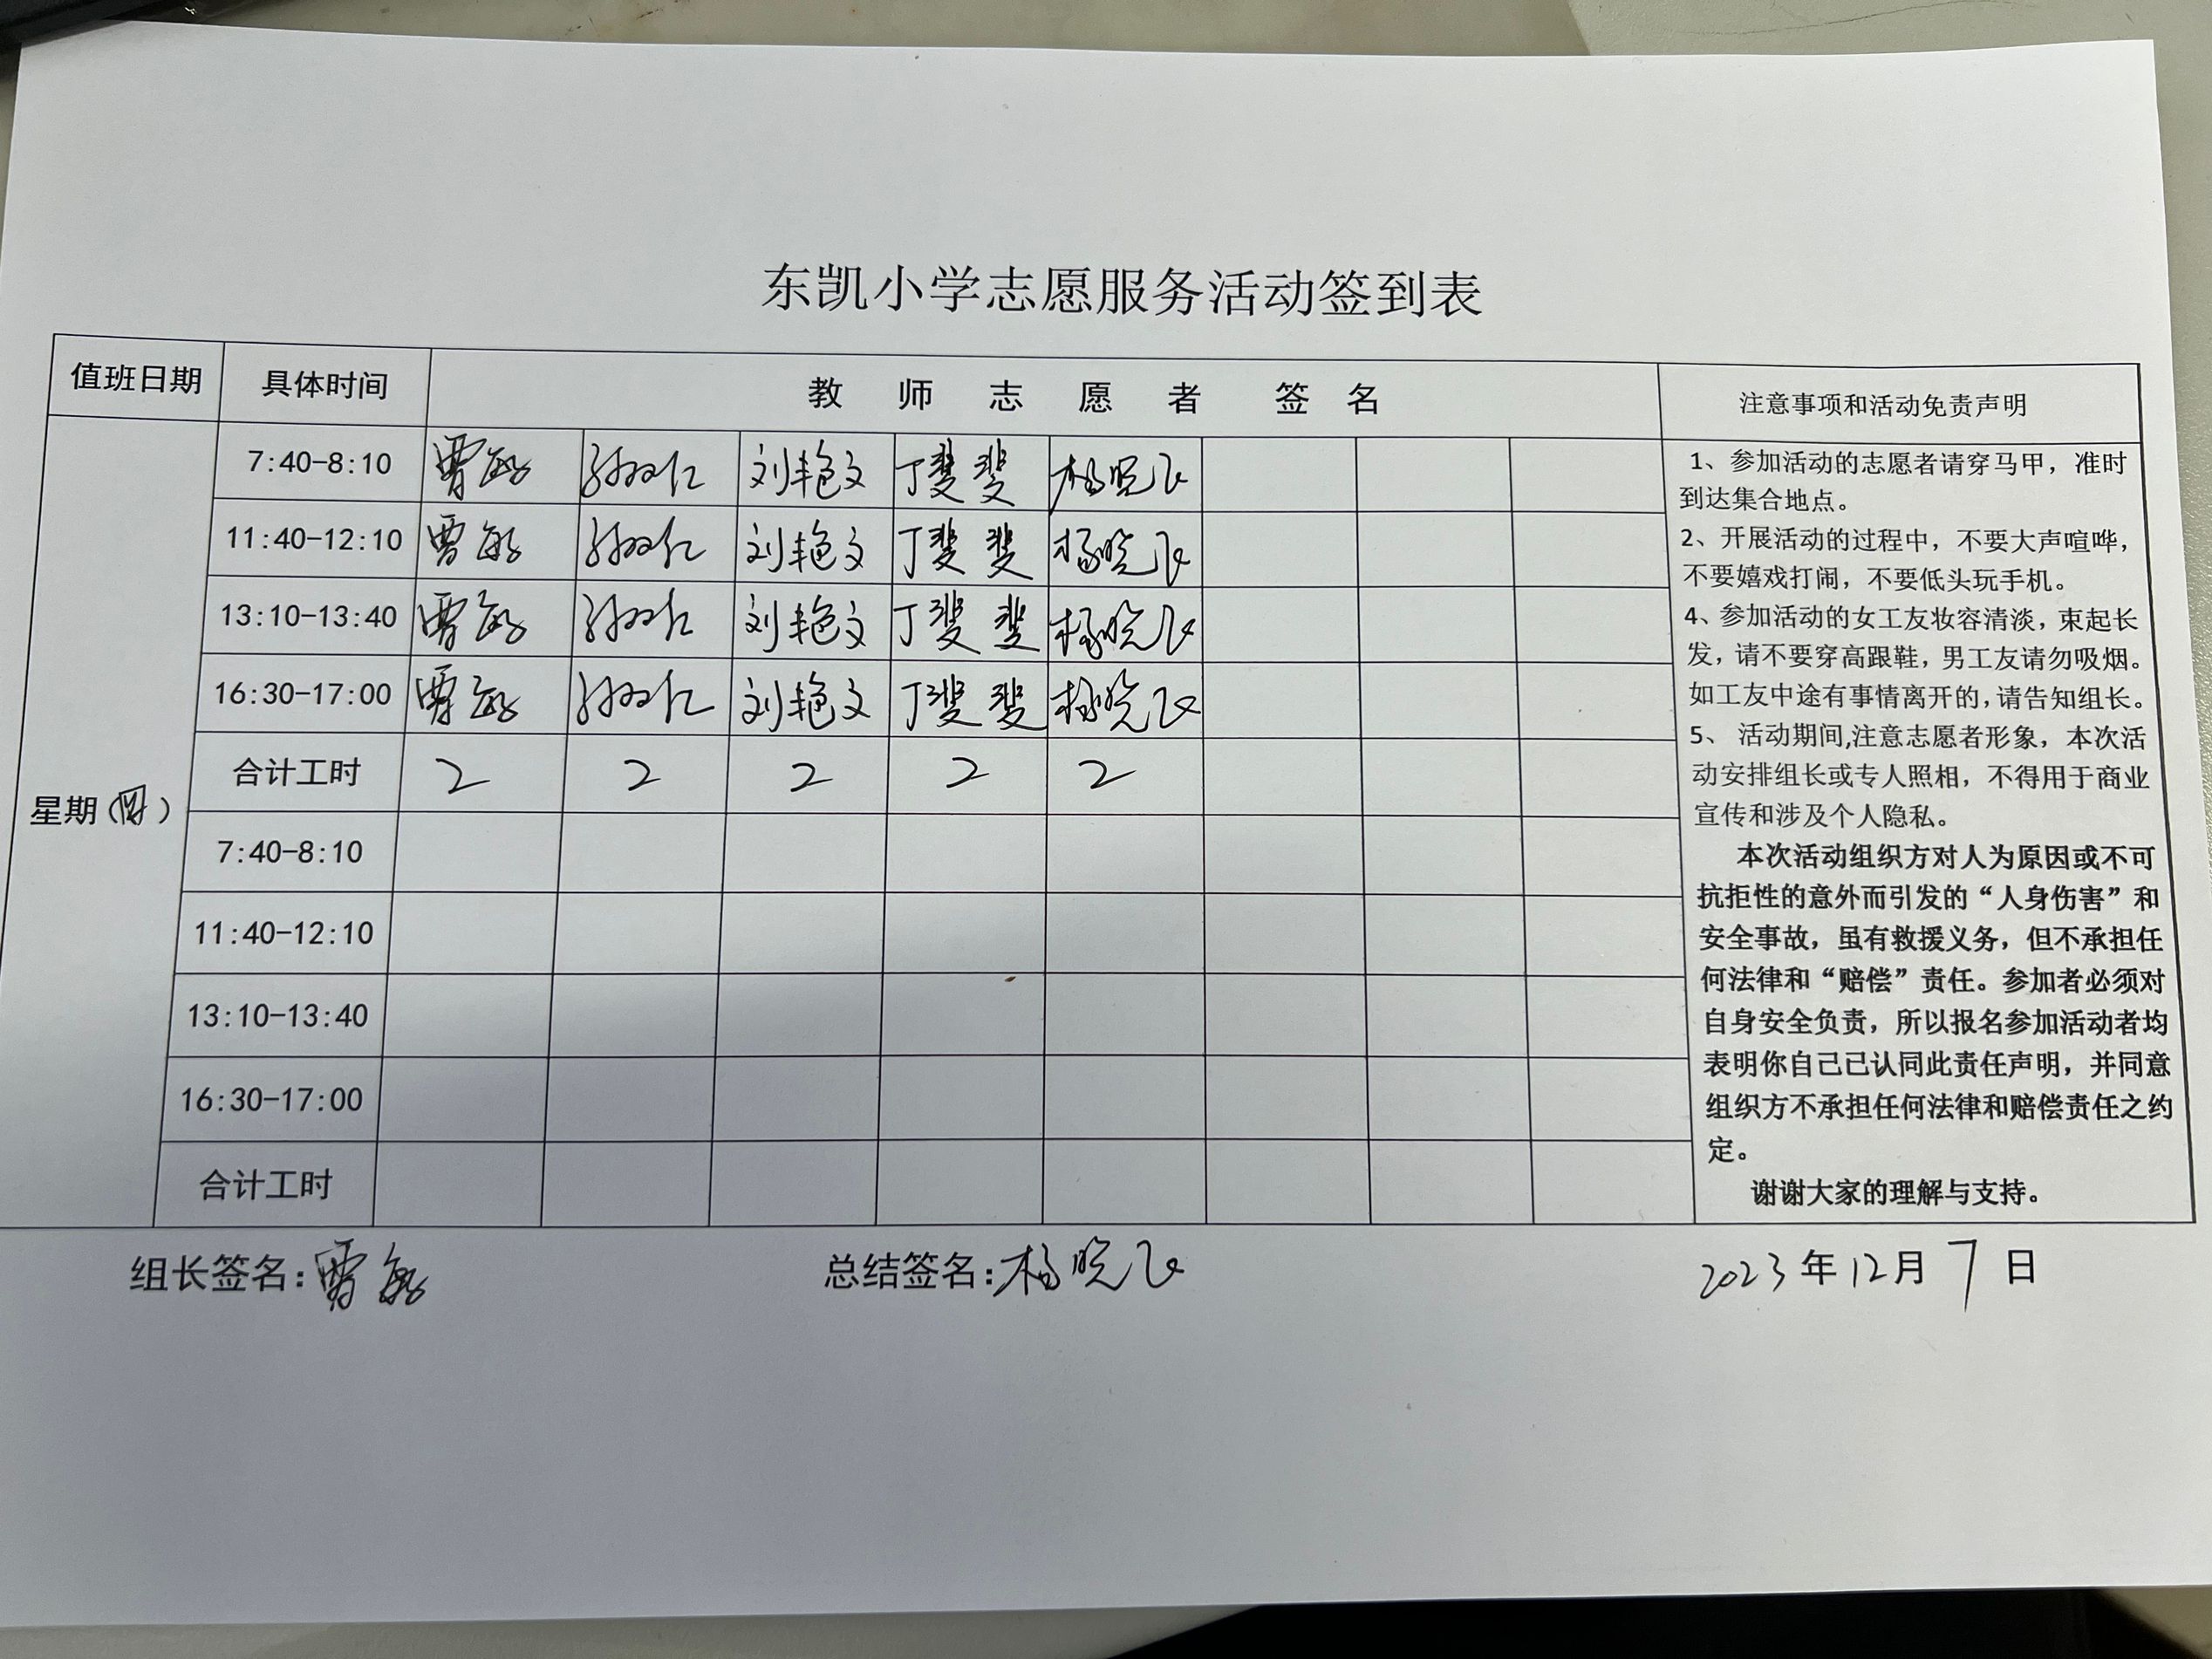 东凯小学志愿服务活动签到表
值班日期 具体时间 教师志愿者签名 注意事项和活动免责声明
星期(四)
7:40-8:10 刘艳文 丁斐斐 杨晓飞
11:40-12:10 刘艳文 丁斐斐 杨晓飞
13:10-13:40 刘艳文 丁斐斐 杨晓飞
16:30-17:00 刘艳文 丁斐斐 杨晓飞
合计工时 2 2 2 2 2
7:40-8:10
11:40-12:10
13:10-13:40
16:30-17:00
合计工时
1、参加活动的志愿者请穿马甲，准时
到达集合地点。
2、开展活动的过程中，不要大声喧哗，
不要嬉戏打闹，不要低头玩手机。
4、参加活动的女工友妆容清淡，束起长
发，请不要穿高跟鞋，男工友请勿吸烟。
如工友中途有事情离开的，请告知组长。
5、 活动期间,注意志愿者形象，本次活
动安排组长或专人照相，不得用于商业
宣传和涉及个人隐私。
本次活动组织方对人为原因或不可
抗拒性的意外而引发的“人身伤害”和
安全事故，虽有救援义务，但不承担任
何法律和“赔偿”责任。参加者必须对
自身安全负责，所以报名参加活动者均
表明你自己已认同此责任声明，并同意
组织方不承担任何法律和赔偿责任之约
定。
谢谢大家的理解与支持。
组长签名： 总结签名：杨晓飞 2023年12月7日